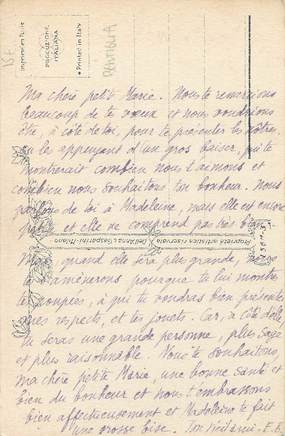 Imprimé en Italie
PRODUZIONE ITALIANA
Printed in Italy
Ma chère petite Marie. Nous te remercions
beaucoup de tes vœux et nous voudrions
être à côté de toi, pour te présenter les nôtres,
en les appuyant d'un gros baiser, qui te
montrerait combien nous t'aimons et
combien nous souhaitons ton bonheur. Nous
parlons de toi à Madeleine, mais elle est encore
petite et elle ne comprend pas très bien.
Proprietà Artistica riservata
Dell'Anna & Gasparini-Milano
Mais, quand elle sera plus grande, nous
te l'amènerons pourque tu lui montres
tes poupées, à qui tu voudras bien présenter
mes respects, et tes jouets. Car, à côté d'elle,
tu seras une grande personne, plus sage
et plus raisonnable. Nous te souhaitons,
ma chère petite Marie, une bonne santé et
bien du bonheur et nous t'embrassons
bien affectueusement et Madeleine te fait
une grosse bise. Ton vieil ami.